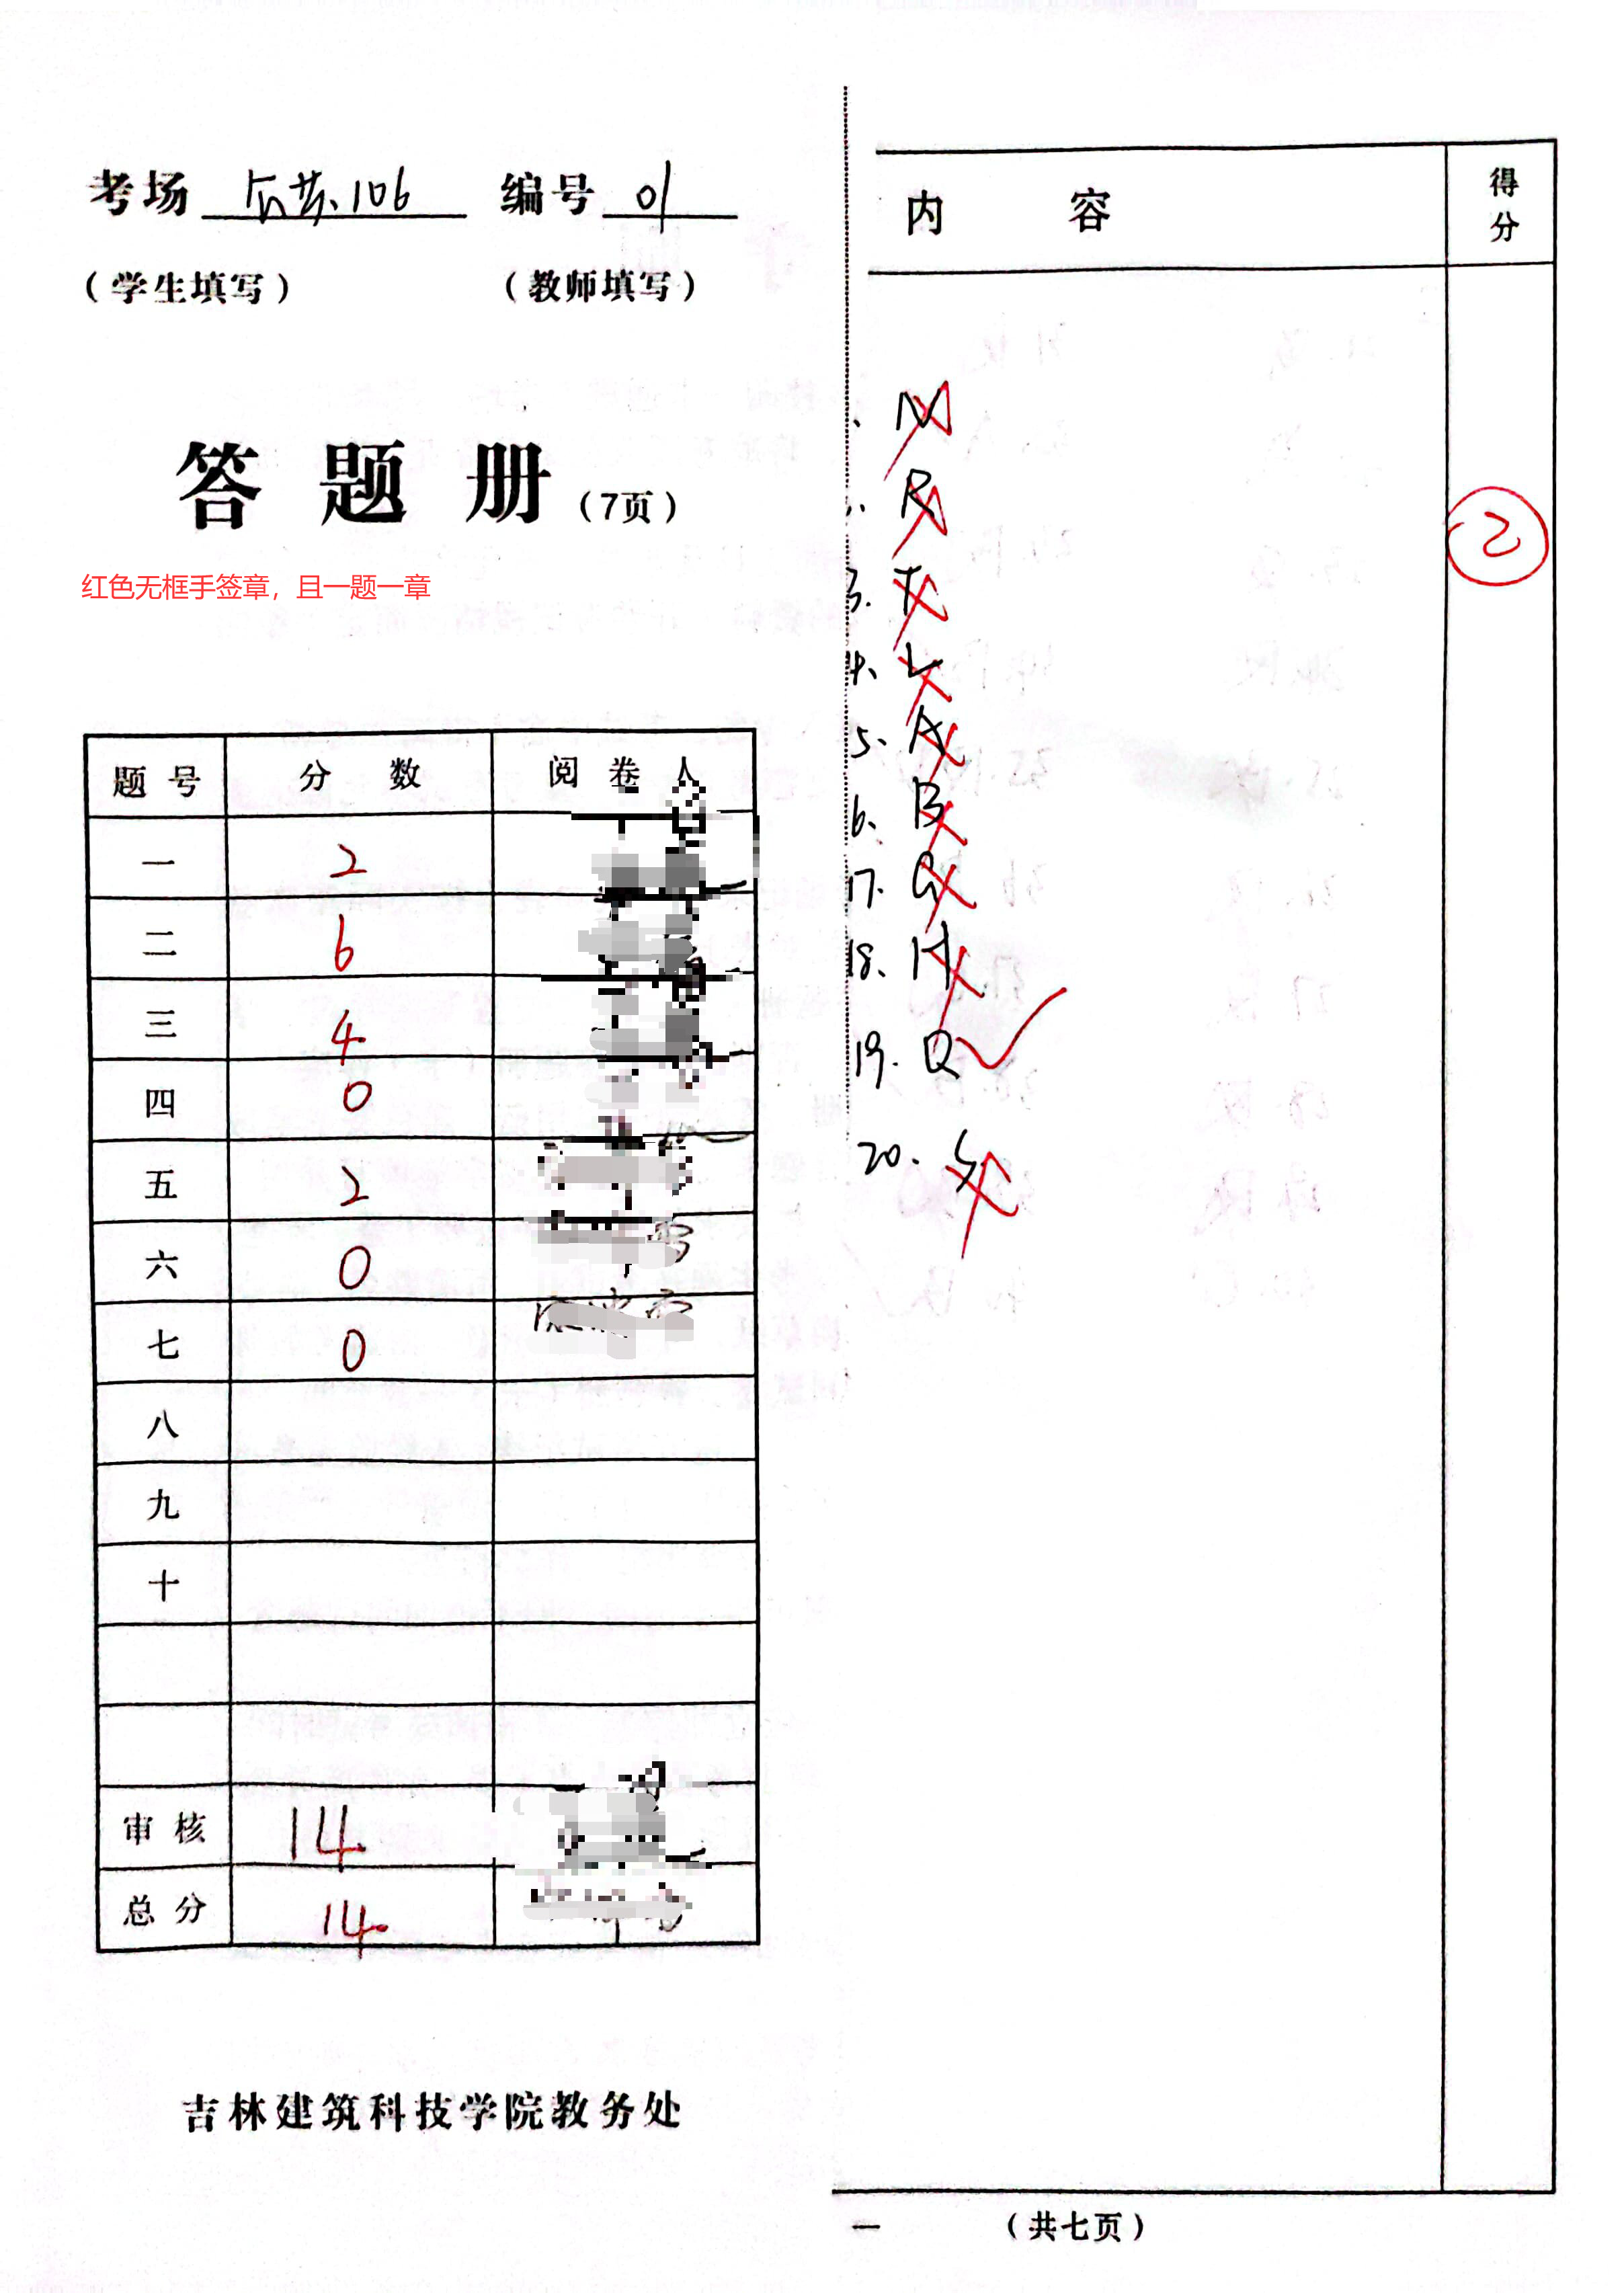 考场 长教.106 编号 01
(学生填写) (教师填写)
答题册(7页)
红色无框手签章，且一题一章
题号 分数 阅卷人
一 2
二 6
三 4
四 0
五 2
六 0
七 0
八
九
十
审核 14
总分 14
吉林建筑科技学院教务处
内容 得分
N
R
3. T
4、L
5、A
6、B
17. G
18、H
19. Q
20.
2
一 (共七页)